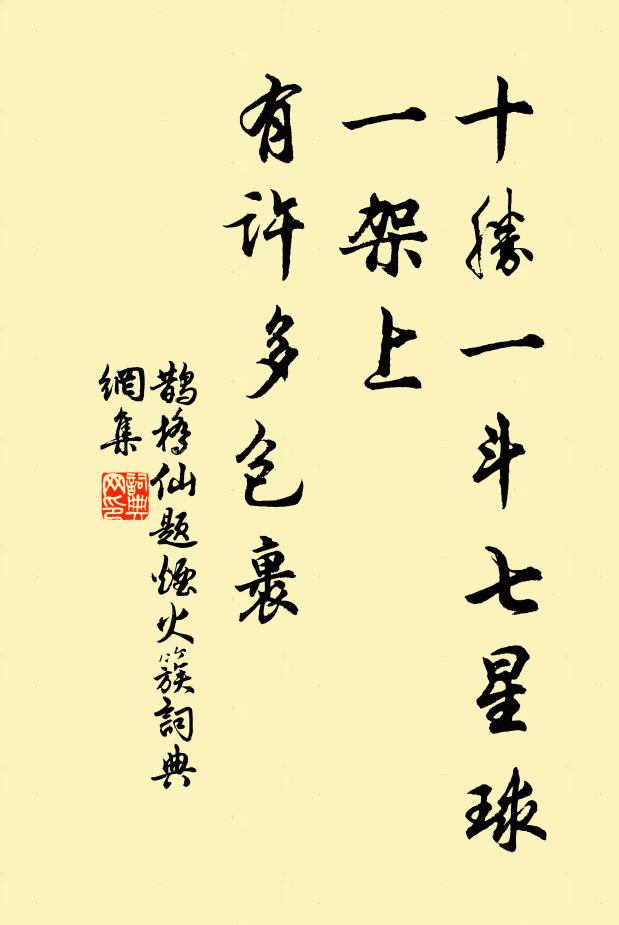 十勝一斗七星球
一架上
有許多包裹
鹊橋仙题煙火簇詞典
網集
詞典
网印